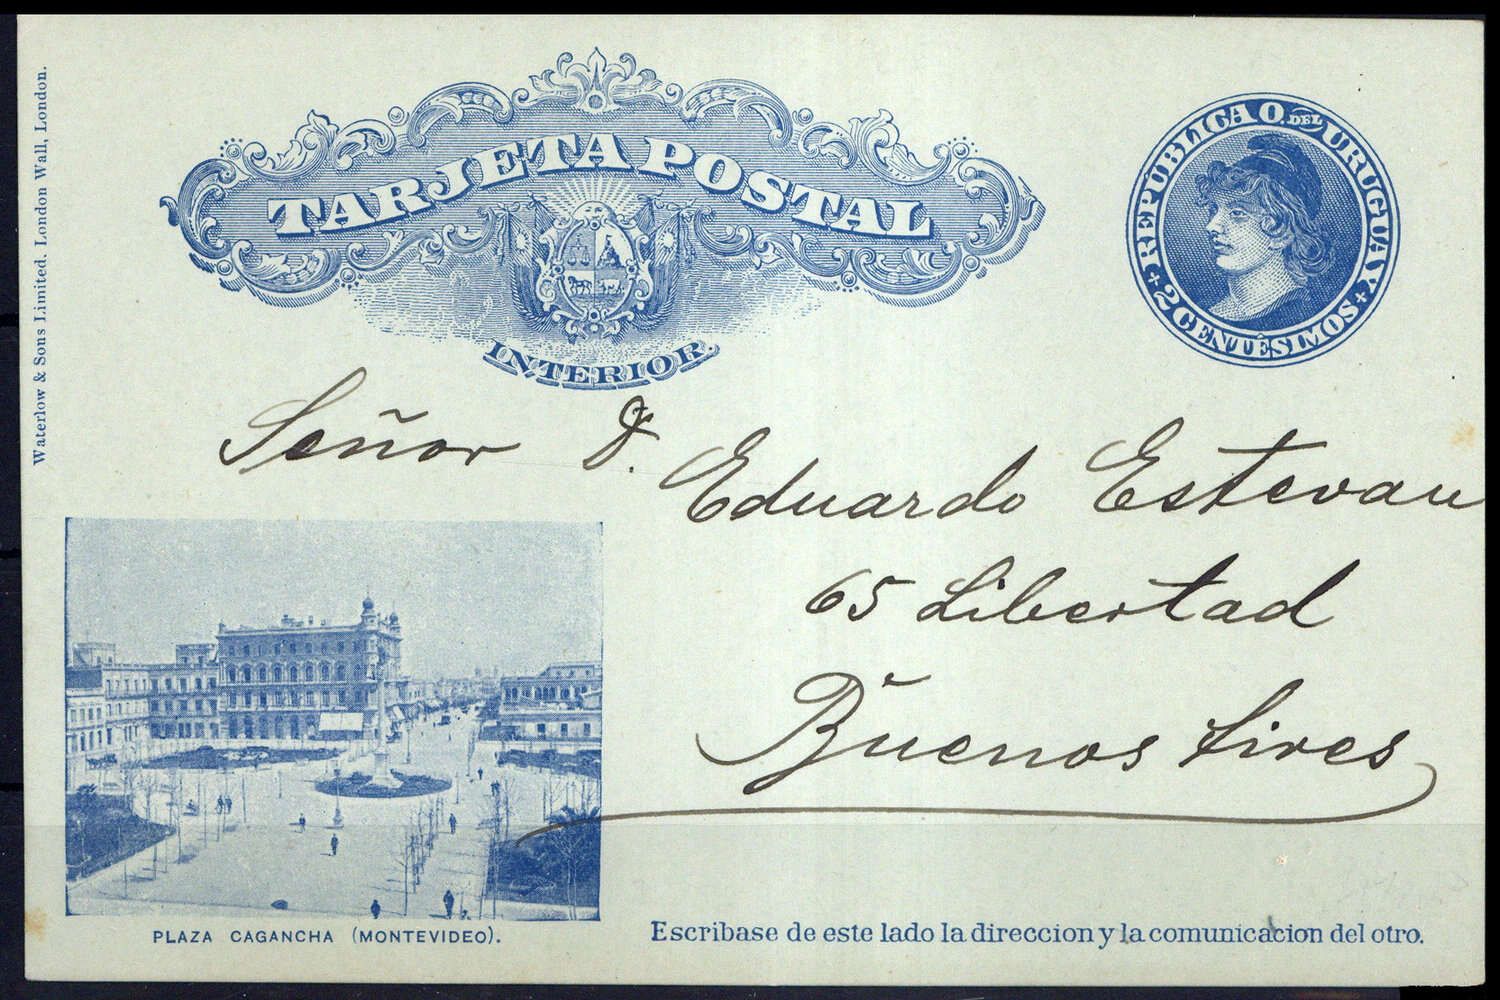 Waterlow & Sons Limited. London Wall, London.
TARJETA POSTAL
INTERIOR.
REPÚBLICA O. DEL URUGUAY
2 CENTÉSIMOS
Señor D.
Eduardo Estevan
65 Libertad
Buenos Aires
PLAZA CAGANCHA (MONTEVIDEO).
Escribase de este lado la direccion y la comunicacion del otro.